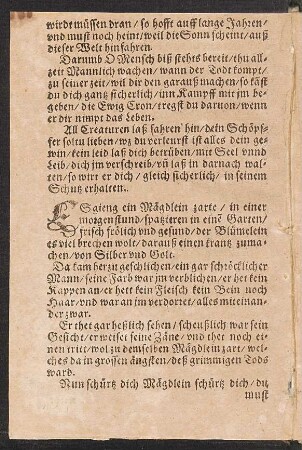 wirdt müssen dran/ so hofft auff lange Jahren/
vnd must noch heint/ weil die Sonn scheint/ auß
dieser Welt hinfahren.
Darumb O Mensch biß stehts bereit/ thu all-
zeit Mannlich wachen/ wann der Todt kompt/
zu seiner zeit/ wil dir den garauß machen/ so käst
du dich gantz sicherlich/ inn Kampff mit jm be-
geben/ die Ewig Cron/ tregst du daruon/ wenn
er dir nimpt das Leben.
All Creaturen laß fahren hin/ dein Schöpf-
fer soltu lieben/ wz du verleurst ist alles dein ge-
win/ kein leid laß dich betrüben/ mit Seel vnnd
Leib/ dich jm verschreib/ vñ laß in darnach wal-
ten/ so wirt er dich/ gleich sicherlich/ in seinem
Schutz erhalten.
ES gieng ein Mägdlein zarte/ in einer
morgenstund/ spatzieren in einẽ Garten/
frisch frölich vnd gesund/ der Blümelein
es viel brechen wolt/ darauß einen krantz zuma-
chen/ von Silber vnd Golt.
Da kam her zu geschlichen/ ein gar schröcklicher
Mann/ seine Farb war jm verblichen/ er het kein
Kappen an/ er hett kein Fleisch kein Bein noch
Haar/ vnd war an jm verdorret/ alles miteinan-
der zwar.
Er thet gar heßlich sehen/ scheußlich war sein
Gesicht/ er weiset seine Zäne/ vnd thet noch ei-
nen tritt/ wol zu demselben Mägdlein zart/ wel-
ches da in grossen ängsten/ deß grimmigen Tods
ward.
Nun schürtz dich Mägdlein schürtz dich/ du
must